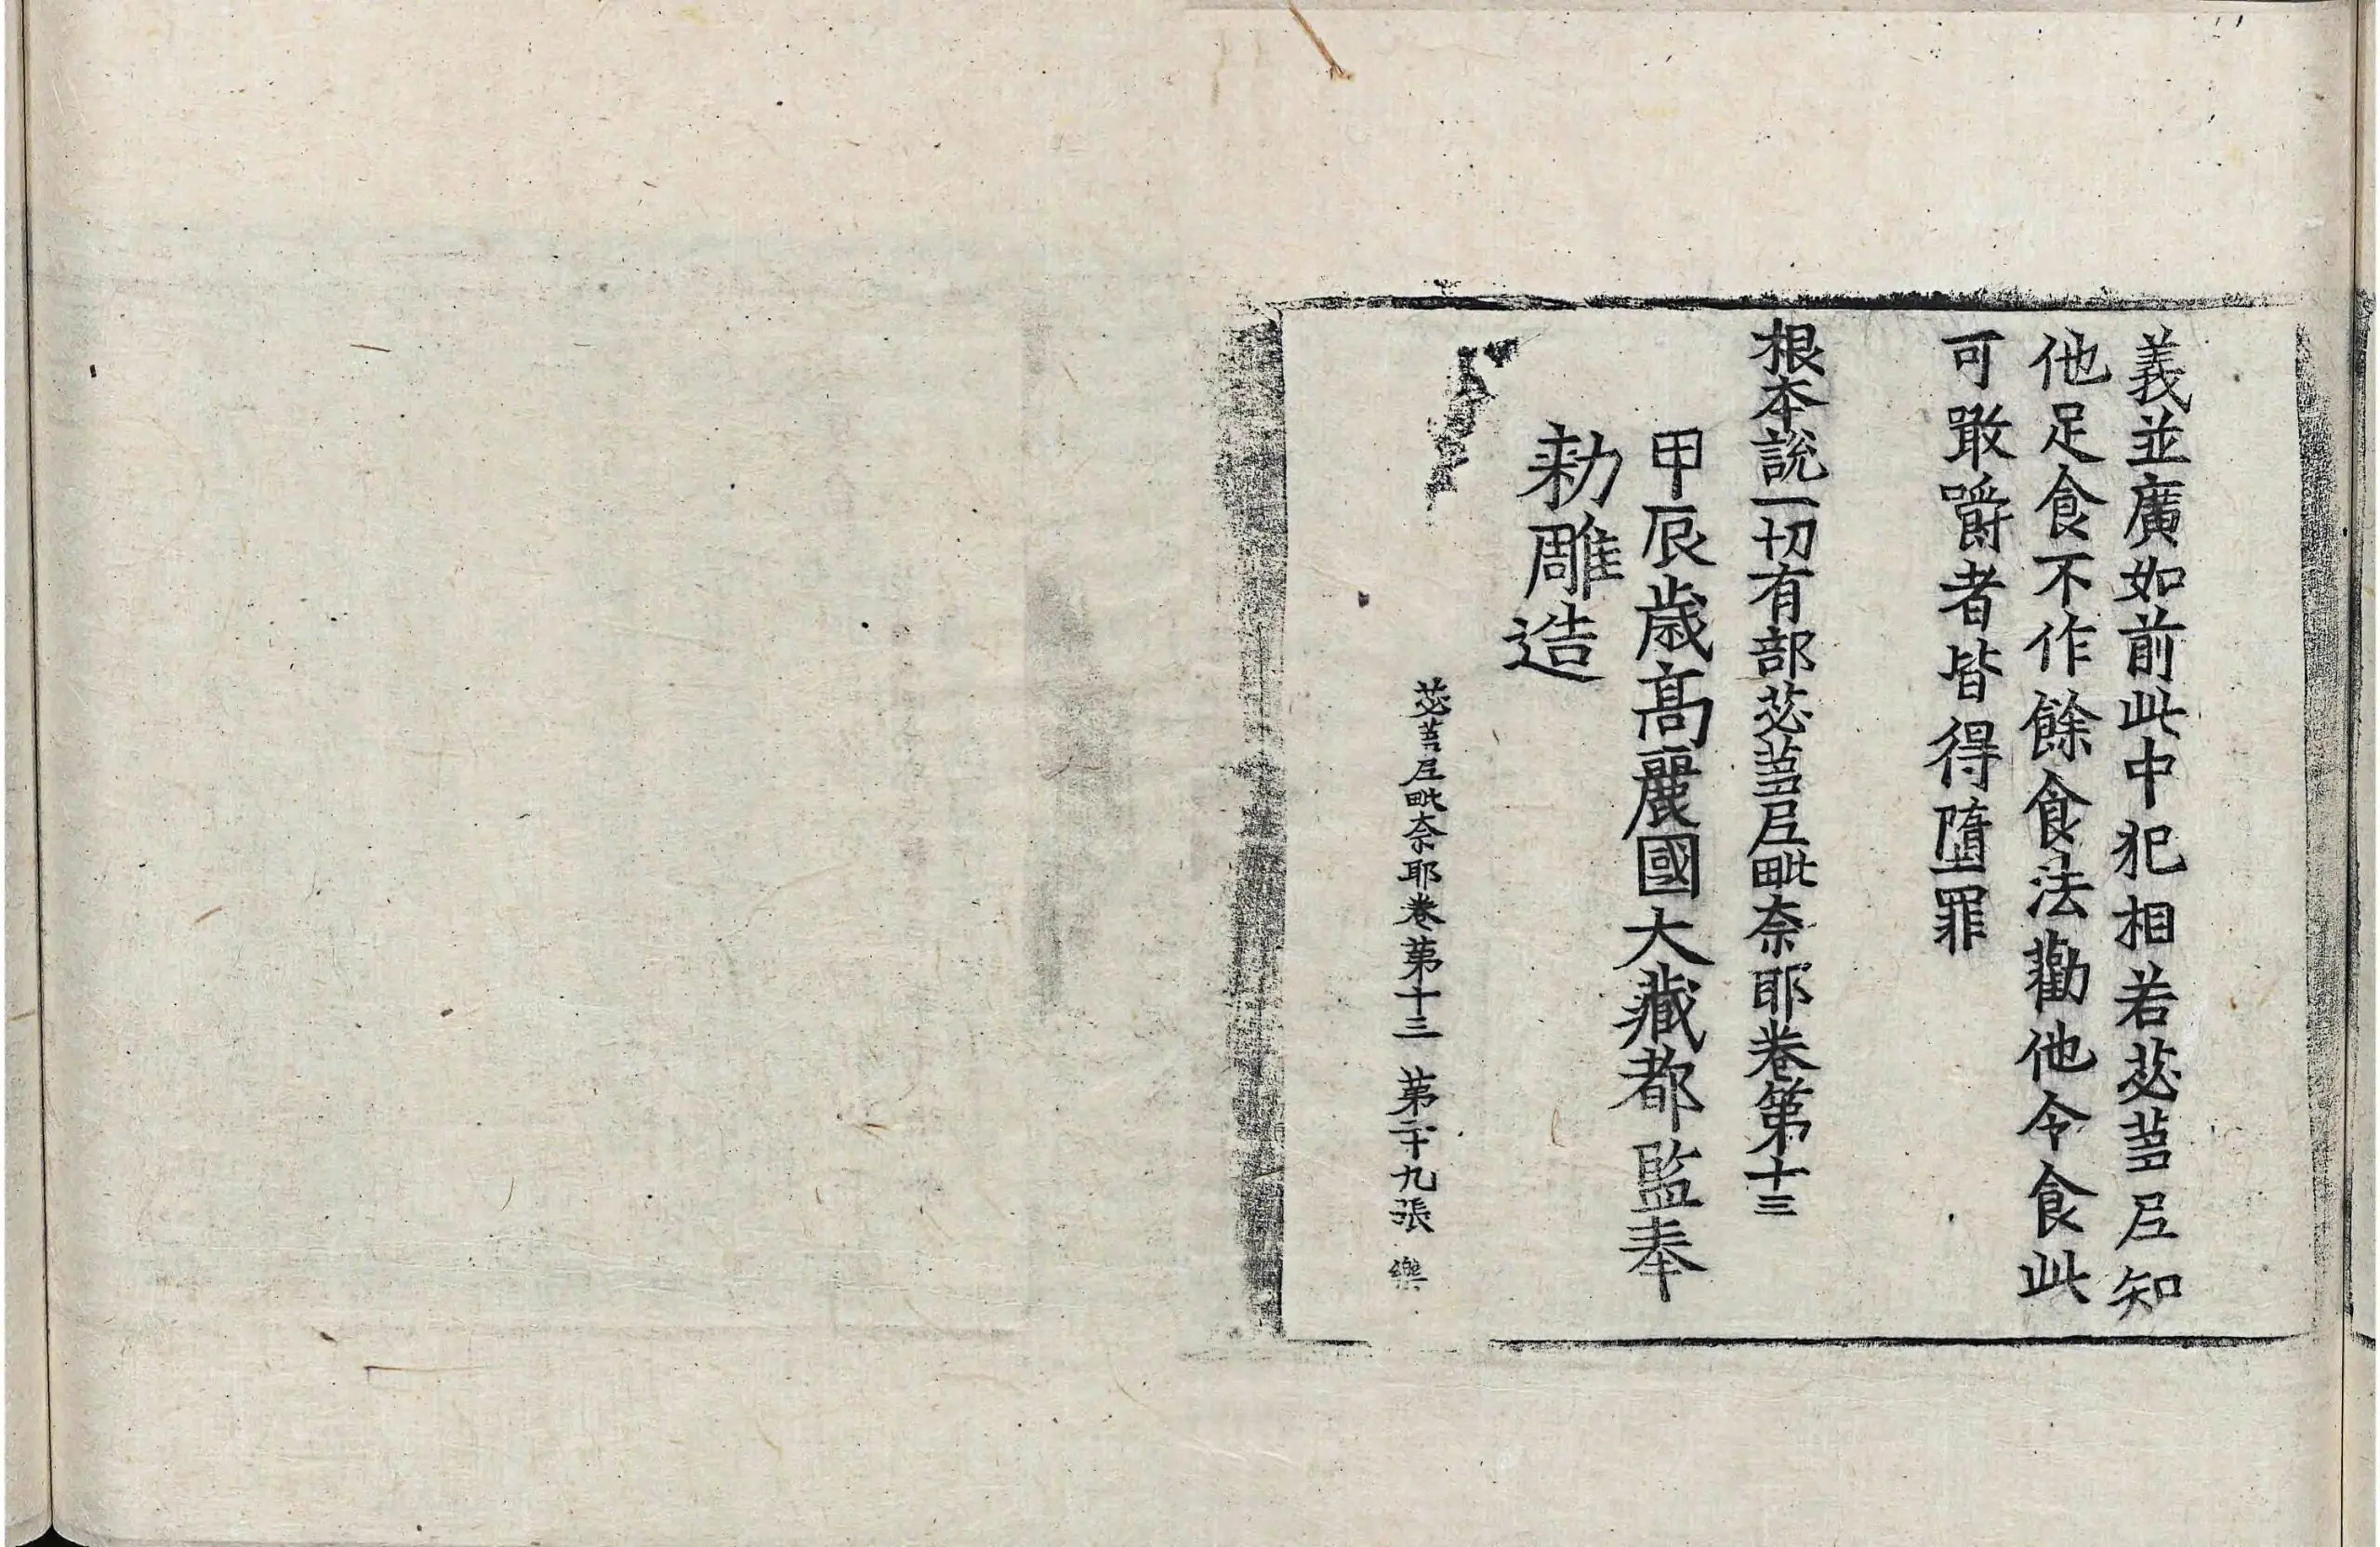 義並廣如前此中犯相若苾蒭尼知
他足食不作餘食法勸他令食此
可噉嚼者皆得墮罪
根本說一切有部苾蒭尼毗奈耶卷第十三
甲辰歲高麗國大藏都監奉
勑雕造
苾蒭尼毗奈耶卷第十三 第二十九張 樂